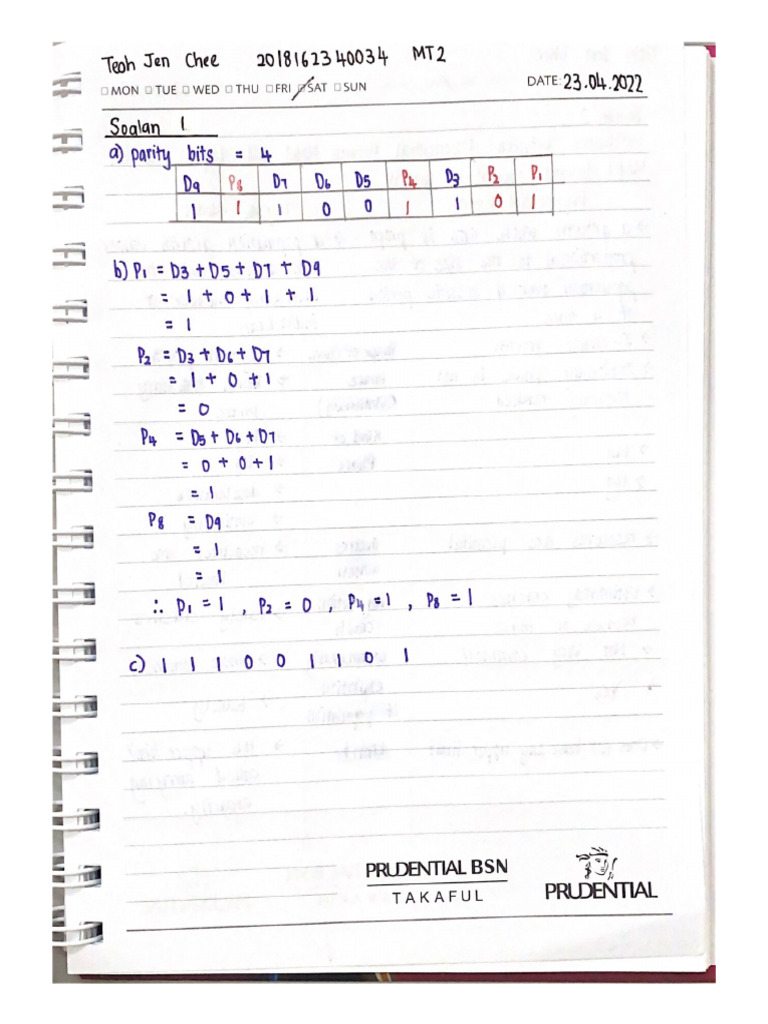 Teoh Jen Chee 2018162340034 MT2
MON TUE WED THU FRI SAT SUN DATE: 23.04.2022
Soalan 1
a) parity bits = 4
D9 P8 D7 D6 D5 P4 D3 P2 P1
1 1 1 0 0 1 1 0 1
b) P1 = D3 + D5 + D7 + D9
= 1 + 0 + 1 + 1
= 1
P2 = D3 + D6 + D7
= 1 + 0 + 1
= 0
P4 = D5 + D6 + D7
= 0 + 0 + 1
= 1
P8 = D9
= 1
= 1
∴ P1 = 1 , P2 = 0 , P4 = 1 , P8 = 1
c) 1 1 1 0 0 1 1 0 1
PRUDENTIAL BSN
TAKAFUL
PRUDENTIAL